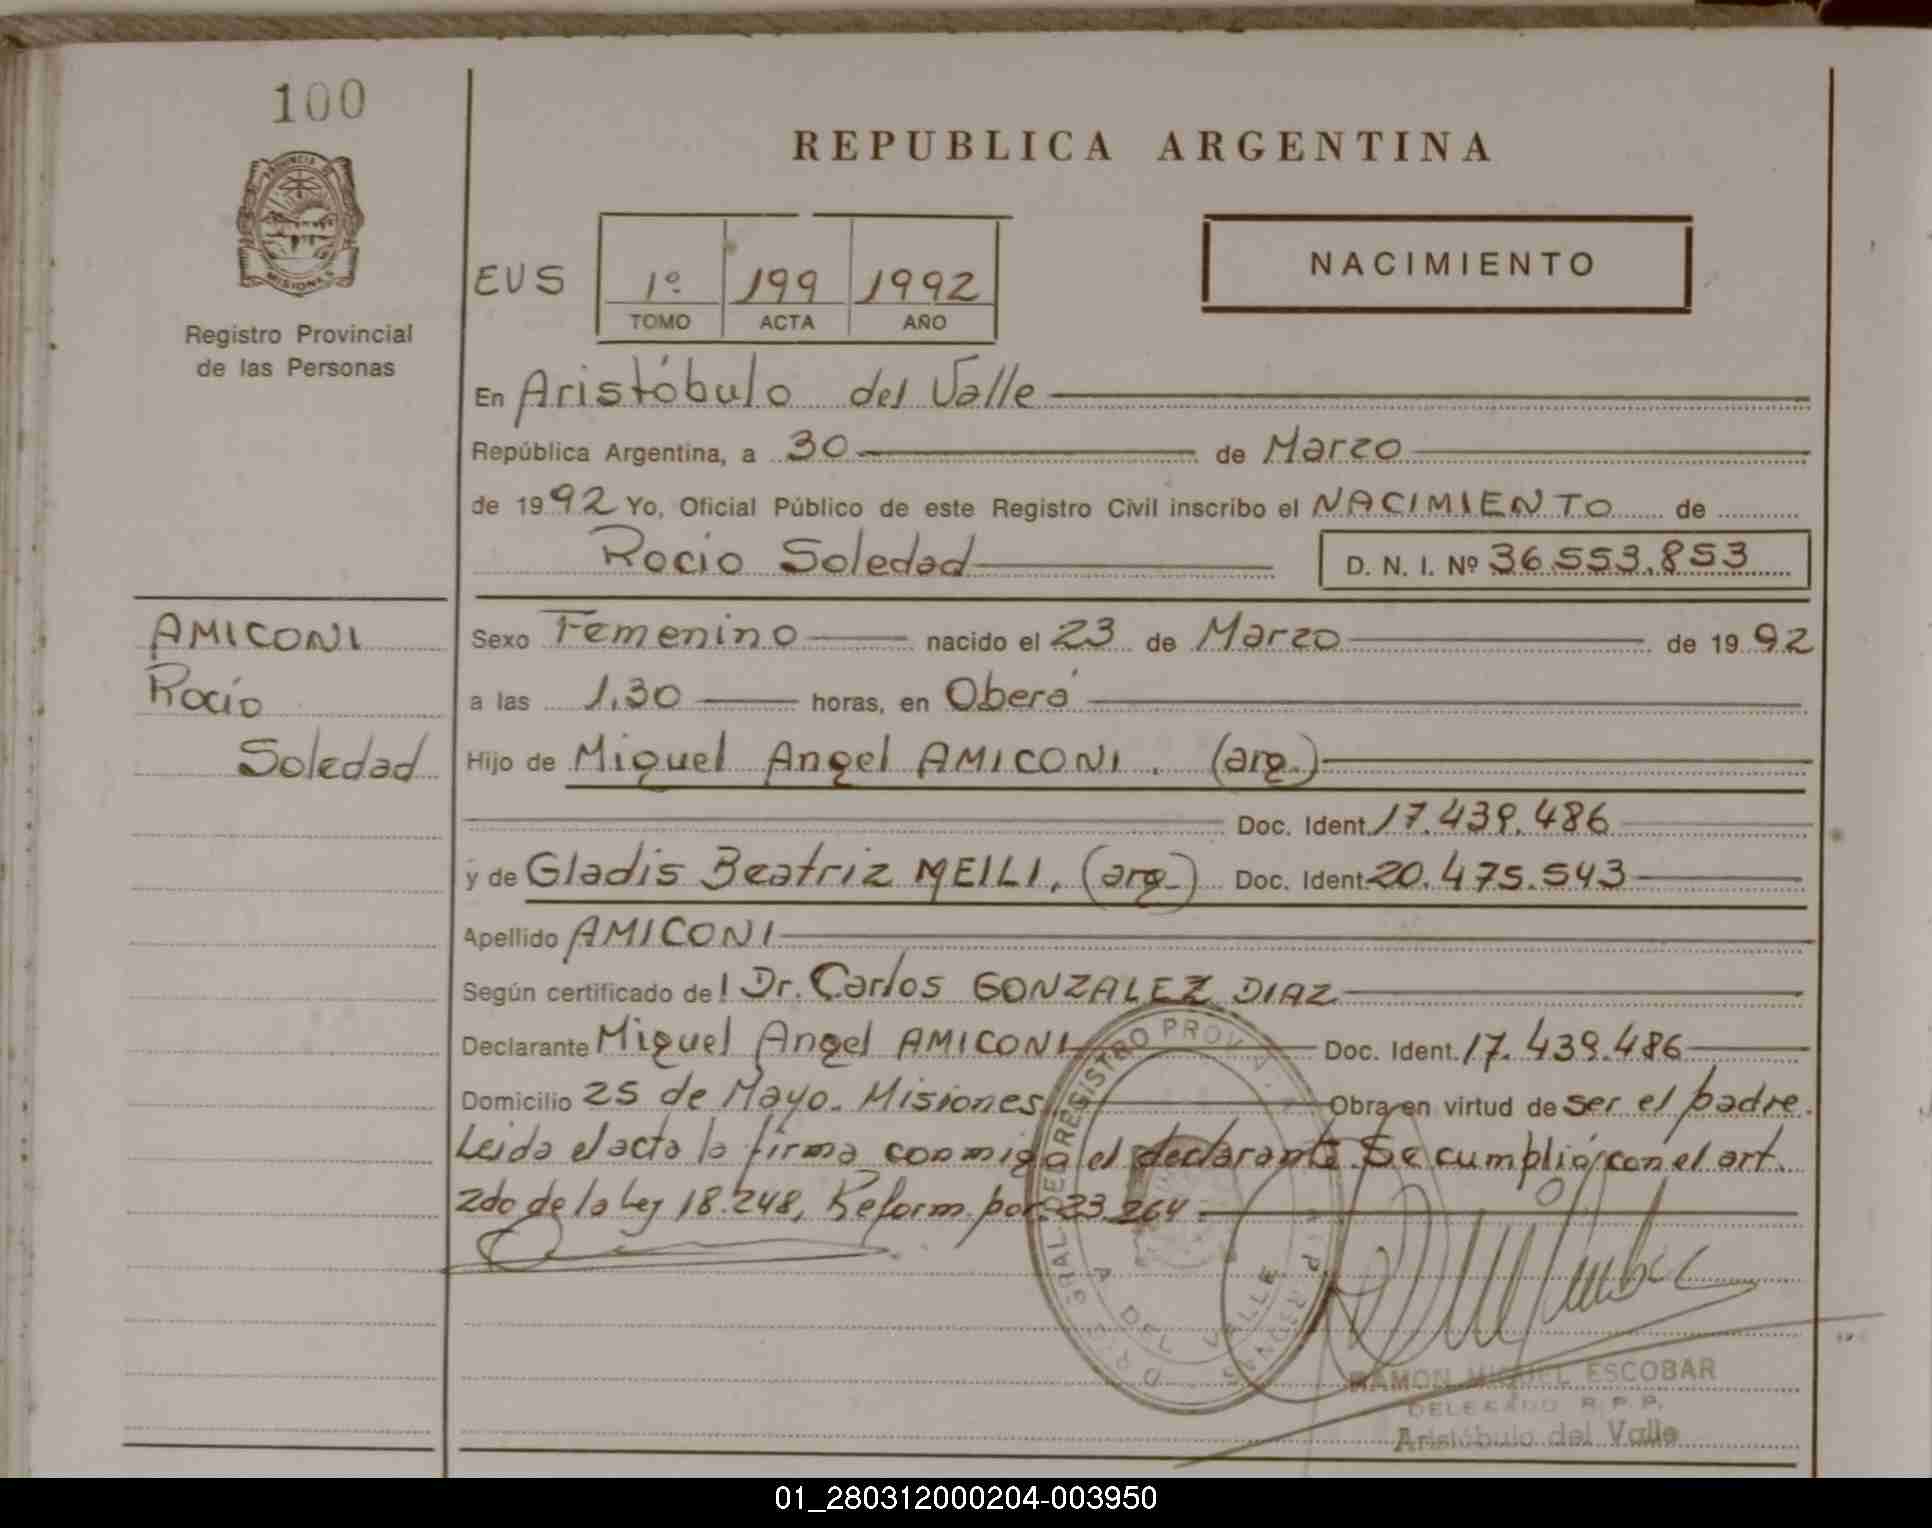 100
REPUBLICA ARGENTINA
PROVINCIA
MISIONES
Registro Provincial
de las Personas
EUS
1º 199 1992
TOMO ACTA AÑO
NACIMIENTO
En Aristóbulo del Valle
República Argentina, a 30 de Marzo
de 1992 Yo, Oficial Público de este Registro Civil inscribo el NACIMIENTO de
Rocio Soledad
D. N. I. Nº 36.553.853
AMICONI
Rocío
Soledad
Sexo Femenino nacido el 23 de Marzo de 1992
a las 1,30 horas, en Oberá
Hijo de Miguel Angel AMICONI. (arg.)
Doc. Ident. 17.439.486
y de Gladis Beatriz MEILI. (arg.) Doc. Ident. 20.475.543
Apellido AMICONI
Según certificado del Dr. Carlos GONZALEZ DIAZ
Declarante Miguel Angel AMICONI Doc. Ident. 17.439.486
Domicilio 25 de Mayo. Misiones Obra en virtud de ser el padre.
Leida el acta la firma conmigo el declarante. Se cumplió con el art.
2do de la Ley 18.248, Reform. por. 23.264.
REGISTRO PROV
DEL VALLE
RAMON MIGUEL ESCOBAR
DELEGADO R.P.P.
Aristóbulo del Valle
01_280312000204-003950